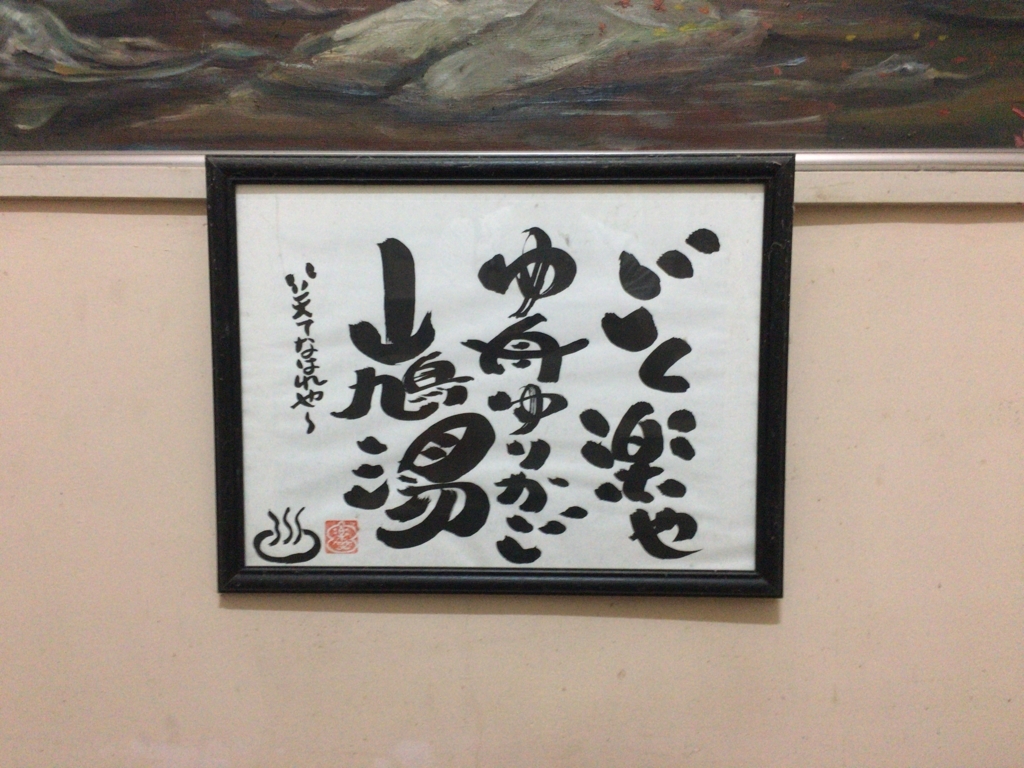 ごく楽や
ゆ舟ゆりかご
山鳩湯
笑てなはれや～